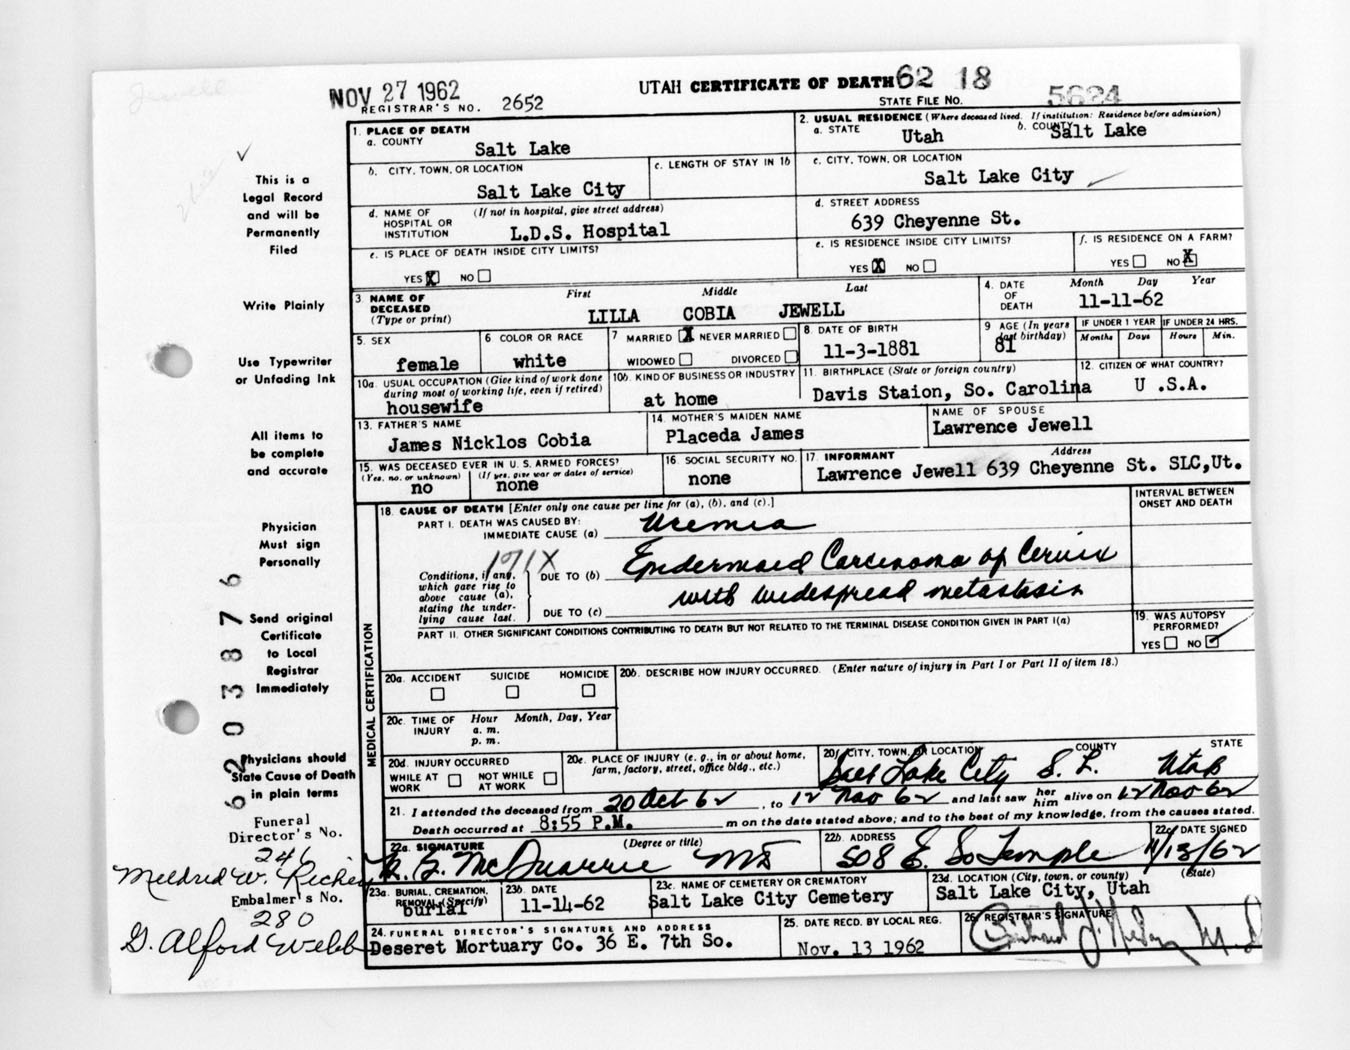 Jewell
NOV 27 1962
UTAH CERTIFICATE OF DEATH 62 18
REGISTRAR'S NO. 2652
STATE FILE NO. 5624
This is a
Legal Record
and will be
Permanently
Filed
Write Plainly
Use Typewriter
or Unfading Ink
All items to
be complete
and accurate
Physician
Must sign
Personally
Send original
Certificate
to Local
Registrar
Immediately
Physicians should
State Cause of Death
in plain terms
62 0 3876
Funeral
Director's No.
246
Mildred W. Richey
Embalmer's No.
280
G. Alford Webb
1. PLACE OF DEATH
a. COUNTY
Salt Lake
2. USUAL RESIDENCE (Where deceased lived. If institution: Residence before admission)
a. STATE Utah b. COUNTY Salt Lake
b. CITY, TOWN, OR LOCATION
Salt Lake City
c. LENGTH OF STAY IN 1b
c. CITY, TOWN, OR LOCATION
Salt Lake City
d. NAME OF HOSPITAL OR INSTITUTION (If not in hospital, give street address)
L.D.S. Hospital
d. STREET ADDRESS
639 Cheyenne St.
e. IS PLACE OF DEATH INSIDE CITY LIMITS?
YES X NO
e. IS RESIDENCE INSIDE CITY LIMITS?
YES X NO
f. IS RESIDENCE ON A FARM?
YES NO X
3. NAME OF DECEASED (Type or print)
First Middle Last
LILLA COBIA JEWELL
4. DATE OF DEATH Month Day Year
11-11-62
5. SEX
female
6 COLOR OR RACE
white
7 MARRIED X NEVER MARRIED
WIDOWED DIVORCED
8 DATE OF BIRTH
11-3-1881
9 AGE (In years last birthday)
81
IF UNDER 1 YEAR IF UNDER 24 HRS.
Months Days Hours Min.
10a. USUAL OCCUPATION (Give kind of work done during most of working life, even if retired)
housewife
10b. KIND OF BUSINESS OR INDUSTRY
at home
11. BIRTHPLACE (State or foreign country)
Davis Staion, So. Carolina
12. CITIZEN OF WHAT COUNTRY?
U .S.A.
13. FATHER'S NAME
James Nicklos Cobia
14. MOTHER'S MAIDEN NAME
Placeda James
NAME OF SPOUSE
Lawrence Jewell
15. WAS DECEASED EVER IN U. S. ARMED FORCES?
(Yes, no, or unknown) (If yes, give war or dates of service)
no none
16. SOCIAL SECURITY NO.
none
17. INFORMANT Address
Lawrence Jewell 639 Cheyenne St. SLC,Ut.
MEDICAL CERTIFICATION
18. CAUSE OF DEATH [Enter only one cause per line for (a), (b), and (c).]
INTERVAL BETWEEN ONSET AND DEATH
PART I. DEATH WAS CAUSED BY:
IMMEDIATE CAUSE (a) Uremia
171X
Conditions, if any, which gave rise to above cause (a), stating the underlying cause last.
DUE TO (b) Epidermoid Carcinoma of Cervix
with widespread metastasis
DUE TO (c)
PART II. OTHER SIGNIFICANT CONDITIONS CONTRIBUTING TO DEATH BUT NOT RELATED TO THE TERMINAL DISEASE CONDITION GIVEN IN PART I(a)
19. WAS AUTOPSY PERFORMED?
YES NO ✓
20a. ACCIDENT SUICIDE HOMICIDE
20b. DESCRIBE HOW INJURY OCCURRED. (Enter nature of injury in Part I or Part II of item 18.)
20c. TIME OF INJURY Hour Month, Day, Year
a. m.
p. m.
20d. INJURY OCCURRED
WHILE AT WORK NOT WHILE AT WORK
20e. PLACE OF INJURY (e. g., in or about home, farm, factory, street, office bldg., etc.)
20f. CITY, TOWN, OR LOCATION COUNTY STATE
Salt Lake City S. L. Utah
21. I attended the deceased from 20 Oct 62, to 12 Nov 62 and last saw her him alive on 12 Nov 62
Death occurred at 8:55 P.M. m on the date stated above; and to the best of my knowledge, from the causes stated.
22a. SIGNATURE (Degree or title)
McQuarrie MD
22b. ADDRESS
508 E. So Temple
22c. DATE SIGNED
11/13/62
23a. BURIAL, CREMATION, REMOVAL (Specify)
burial
23b. DATE
11-14-62
23c. NAME OF CEMETERY OR CREMATORY
Salt Lake City Cemetery
23d. LOCATION (City, town, or county) (State)
Salt Lake City, Utah
24. FUNERAL DIRECTOR'S SIGNATURE AND ADDRESS
Deseret Mortuary Co. 36 E. 7th So.
25. DATE RECD. BY LOCAL REG.
Nov. 13 1962
26. REGISTRAR'S SIGNATURE